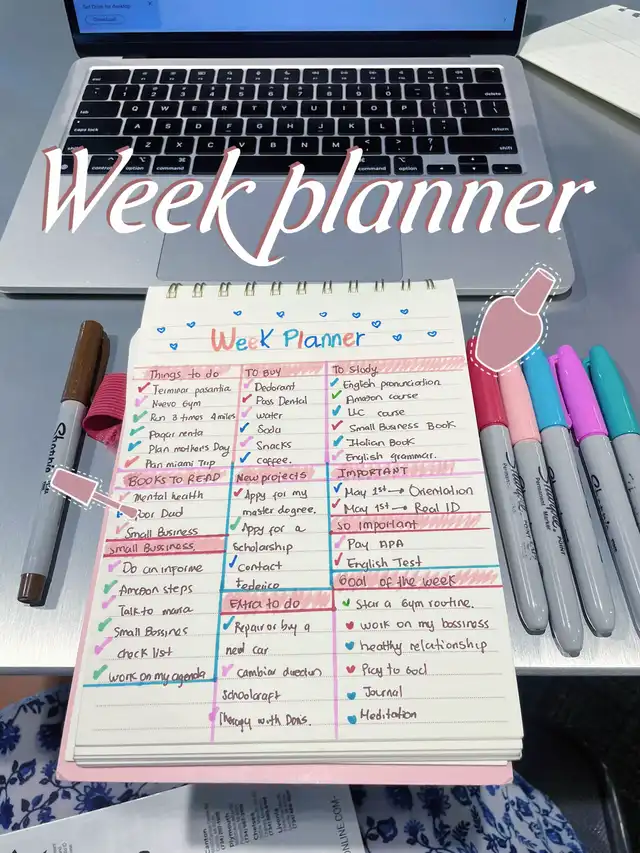 Download
Week planner
Week Planner
Things to do
Terminar pasantia
Nuevo Gym
Run 3 times 4 miles
Pagar renta
Plan mother's Day
Plan miami Trip
TO BUY
Dedorant
Pass Dental
water
Soda
Snacks
coffee.
TO Study
English pronunciation
Amazon course
LLC course
Small Business Book
Italian Book
English grammar.
BOOKS TO READ
Mental health
Dad
Small Business
New projects
Apply for my
master degree.
Apply for a
Scholarship
Contact
Federico
IMPORTANT
May 1st → Orientation
May 1st → Real ID
so important
Pay APA
English Test
Small Bussiness
Do an informe
Amazon steps
Talk to maria
Small Bossines
check list
work on my agenda
Extra to do
Repair or buy a
new car
cambiar direction
schoolcraft
Therapy with Doris.
Goal of the week
Star a Gym routine.
work on my bossiness
healthy relationship
Pray to God
Journal
Meditation
Sharpie
control
option
command
command
option
delete
return
shift
caps lock
tab
Canton
Plymouth
ONLINE.COM